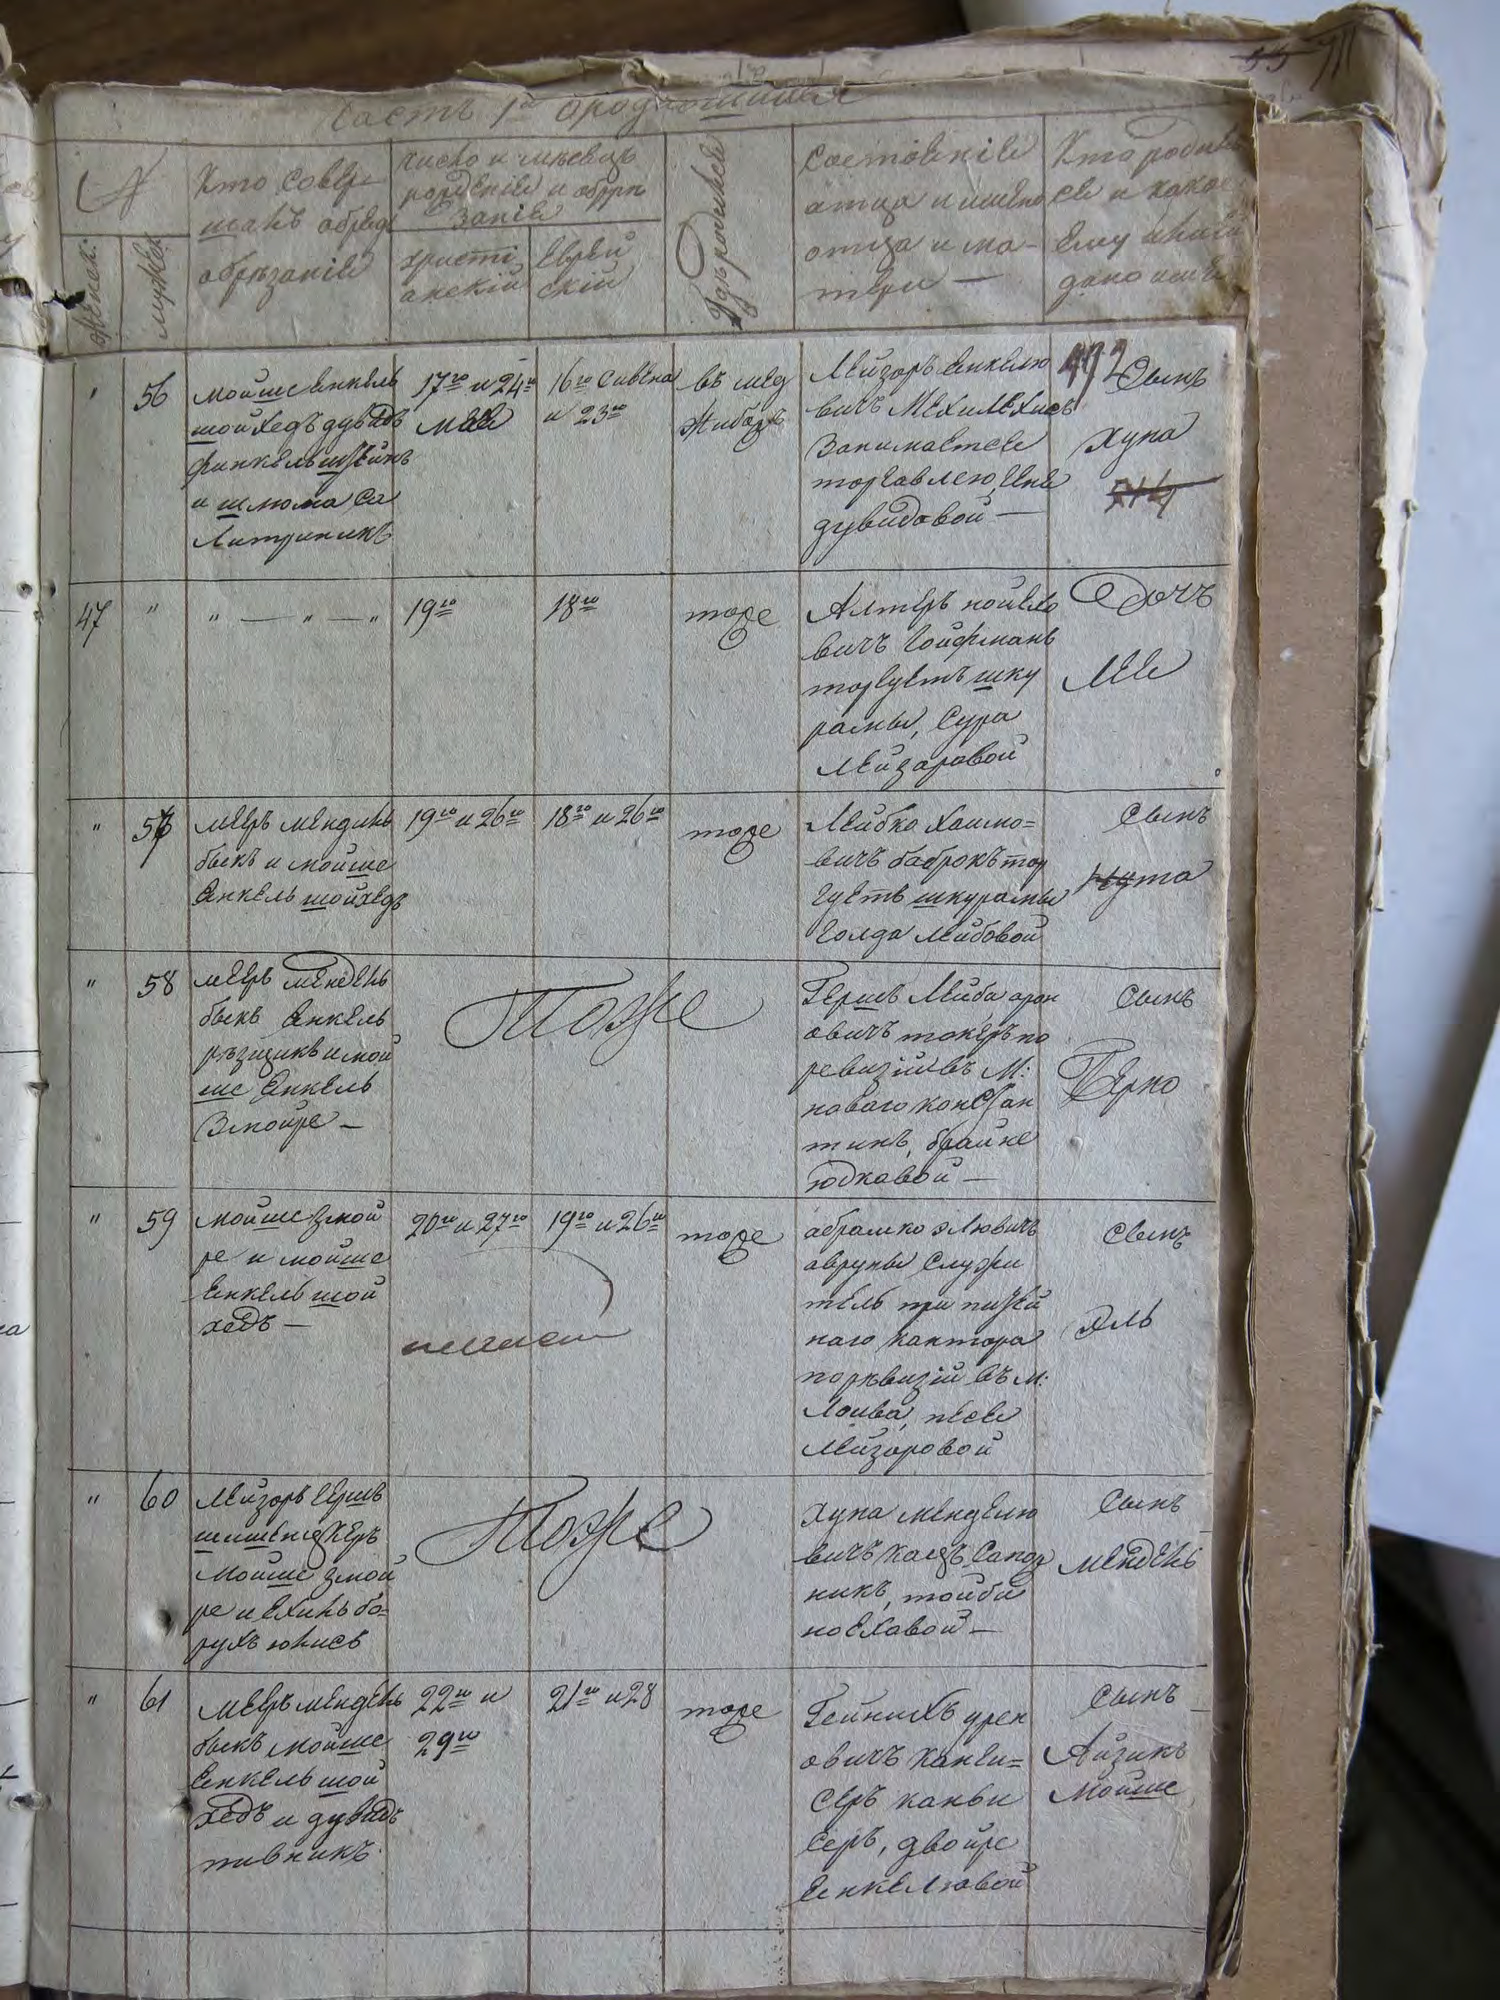 Часть 1я о родившихся
№
Женск.
мужск.
Кто совер
шалъ обряд
обрѣзанія
число и мѣсяцъ
рожденія и обрѣ
занія
христі
анскій
Еврей
скій
Гдѣ родился
Состояніе
отца и имена
отца и ма-
тери —
Кто родил
ся и какое
Ему или ей
дано имя
" 56
мойше Енкель
шойхедъ дувидъ
финкельштейнъ
и шлома Са
Литрникъ
17го и 24го
мая
16го Сивена
и 23го
въ мед
жибожъ
Лейзоръ Енкелю
вичъ Мехилехисъ
Занимается
торговлею, Ене
дувидовой —
Сынъ
Хуна
47 "
" — " — "
19го
18го
тоже
Алтеръ нойехо
вичъ Гойфманъ
торгуетъ шку
рамы, Сура
Лейзаровой
Дочь
Лея
" 57
мееръ мендель
быкъ и мойше
Енкель шойхедъ
19го и 26го
18го и 26го
тоже
Лейбко Хаимо=
вичъ баброкъ тор
гуетъ шкурамы
Голда Лейбовой
Сынъ
нута
" 58
мееръ мендель
быкъ Енкель
рѣзщикъ и мой
ше Енкель
Змойре —
Тоже
Гершъ Лейба арон
овичъ токеръ по
ревизіи въ М:
новаго констан
тинъ, брайне
юдковой —
Сынъ
Берко
" 59
мойше Змой
ре и мойше
Енкель шой
хедъ —
20го и 27го
19го и 26го
тоже
абрамко элювичъ
аврупы Служи
тель при питей
наго кантора
поревизіи въ м:
Лоива, песе
Лейзоровой
Сынъ
Эль
" 60
Лейзоръ Гершъ
мойше змой
ре и Ехиль бо=
рухъ юкисъ
Тоже
Хуна менделю
вичъ кацъ Сапож
никъ, тойби
ноеховой —
Сынъ
мендель
" 61
мееръ мендель
быкъ мойше
Енкель шой
хедъ и дувидъ
пивникъ.
22го и
29го
21го и 28
тоже
Гейнихъ урен
овичъ канви=
серъ канви
серъ, двойре
Енкелювой
Сынъ
Айзикъ
Мойше